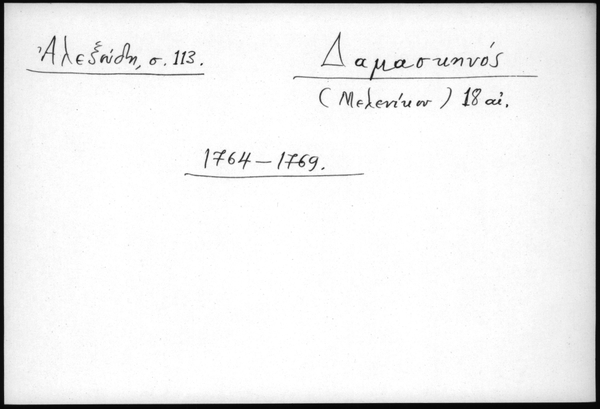 Ἀλεξούδη, σ. 113.
Δαμασκηνός
(Μελενίκου) 18 αἰ.
1764–1769.